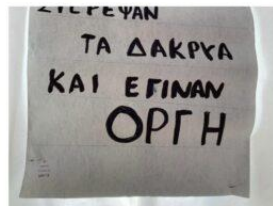 ΣΤΕΡΕΨΑΝ
ΤΑ ΔΑΚΡΥΑ
ΚΑΙ ΕΓΙΝΑΝ
ΟΡΓΗ